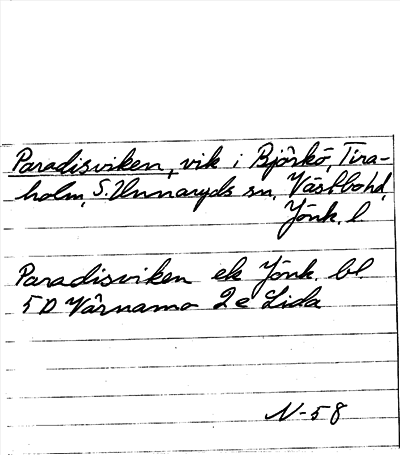 Paradisviken, vik i Björkö, Tira-
holm, S. Unnaryds sn, Västbohd,
Jönk. l
Paradisviken ek Jönk. bl.
5 D Värnamo 2 e Lida
N-58